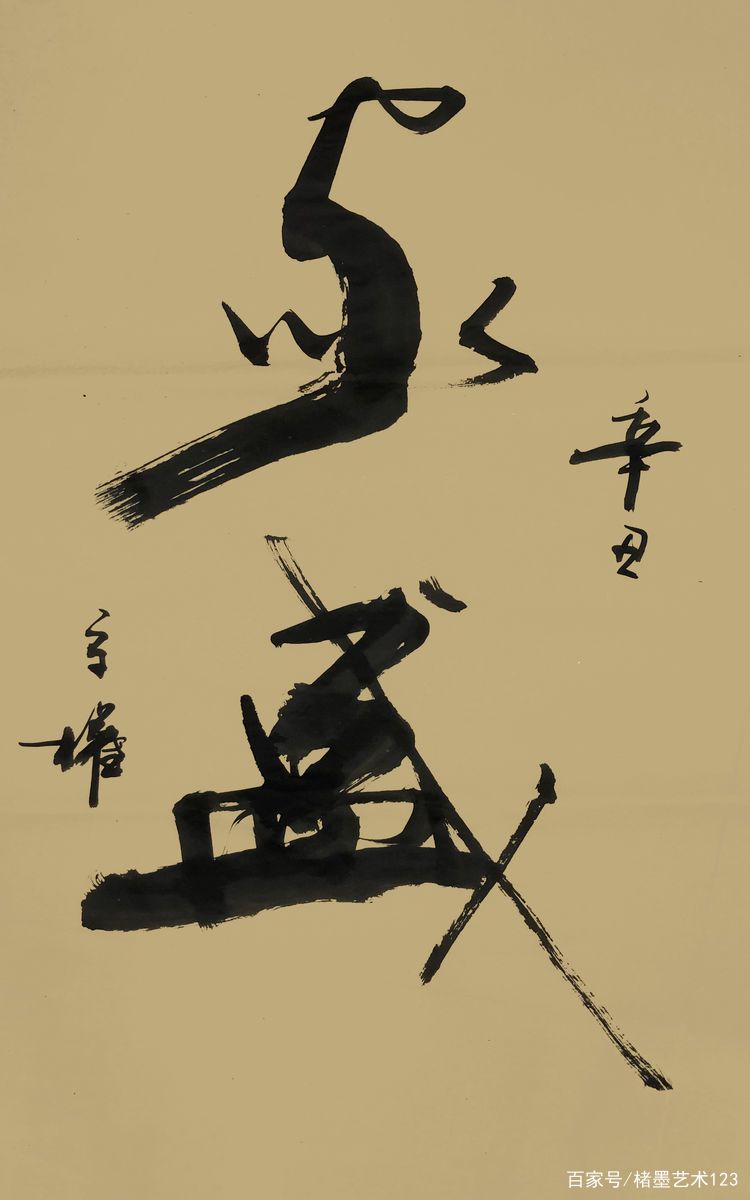 永盛
辛丑
權
百家号/楮墨艺术123